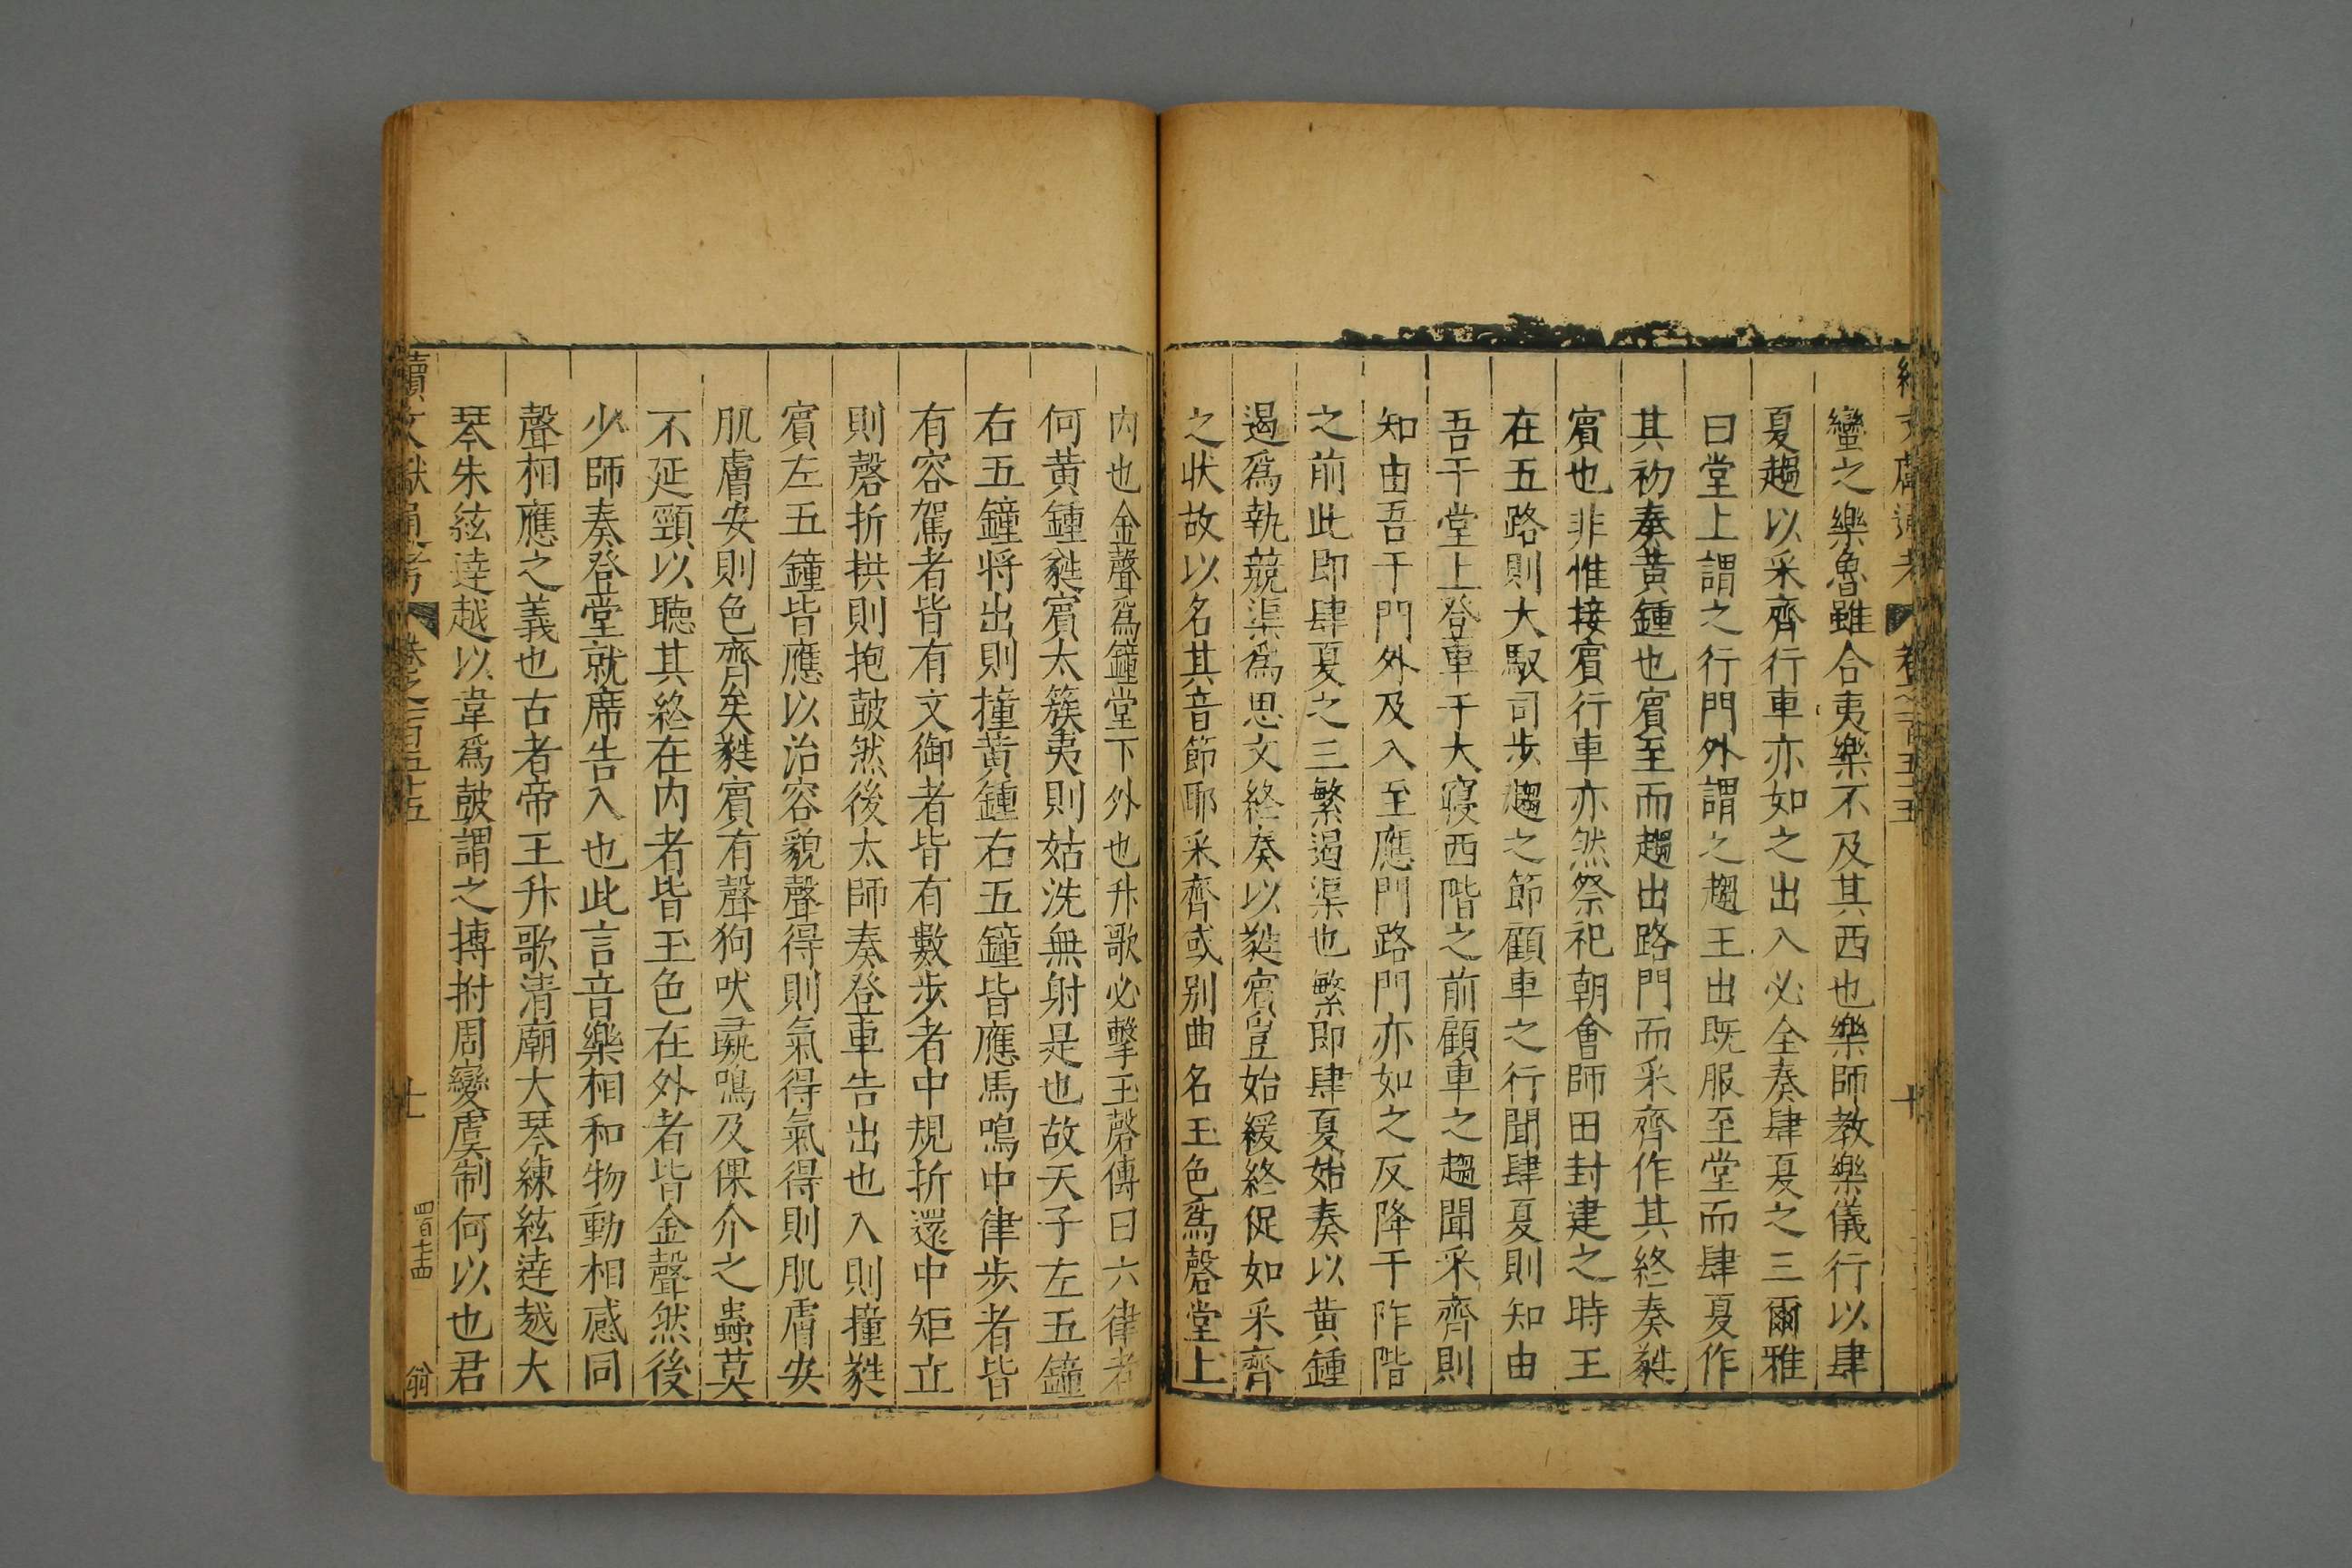 蠻之樂魯雖合夷樂不及其西也樂師教樂儀行以肆
夏趨以采齊行車亦如之出入必全奏肆夏之三爾雅
曰堂上謂之行門外謂之趨王出既服至堂而肆夏作
其初奏黃鍾也賓至而趨出路門而采齊作其終奏蕤
賓也非惟接賓行車亦然祭祀朝會師田封建之時王
在五路則大馭司步趨之節顧車之行聞肆夏則知由
吾于堂上登車于大寢西階之前顧車之趨聞采齊則
知由吾于門外及入至應門路門亦如之反降于阼階
之前此即肆夏之三繁遏渠也繁即肆夏始奏以黃鍾
遏爲執競渠爲思文終奏以蕤賓豈始緩終促如采齊
之狀故以名其音節耶采齊或别曲名玉色爲磬堂上
内也金聲爲鐘堂下外也升歌必擊玉磬傳曰六律者
何黃鍾蕤賓太簇夷則姑洗無射是也故天子左五鐘
右五鐘將出則撞黃鍾右五鐘皆應馬鳴中律步者皆
有容駕者皆有文御者皆有數步者中規折還中矩立
則磬折拱則抱鼓然後太師奏登車告出也入則撞蕤
賓左五鐘皆應以治容貌聲得則氣得氣得則肌膚安
肌膚安則色齊矣蕤賓有聲狗吠彘鳴及倮介之蟲莫
不延頸以聽其終在内者皆玉色在外者皆金聲然後
少師奏登堂就席告入也此言音樂相和物動相感同
聲相應之義也古者帝王升歌清廟大琴練絃達越大
琴朱絃達越以韋爲鼓謂之搏拊周變虞制何以也君
續文獻通考 卷之一百五十五
十一
四百七十四
翁